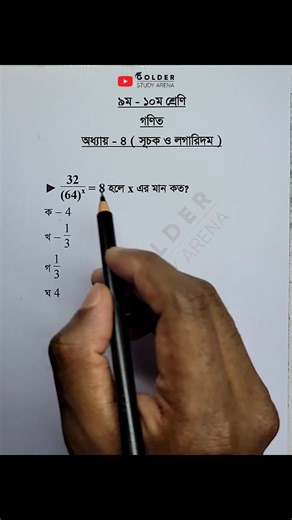 GOLDER
STUDY ARENA
৯ম - ১০ম শ্রেণি
গণিত
অধ্যায় - ৪ ( সূচক ও লগারিদম )
▶ 32/(64)^x = 8 হলে x এর মান কত?
ক – 4
খ – 1/3
গ 1/3
ঘ 4
GOLDER
STUDY ARENA